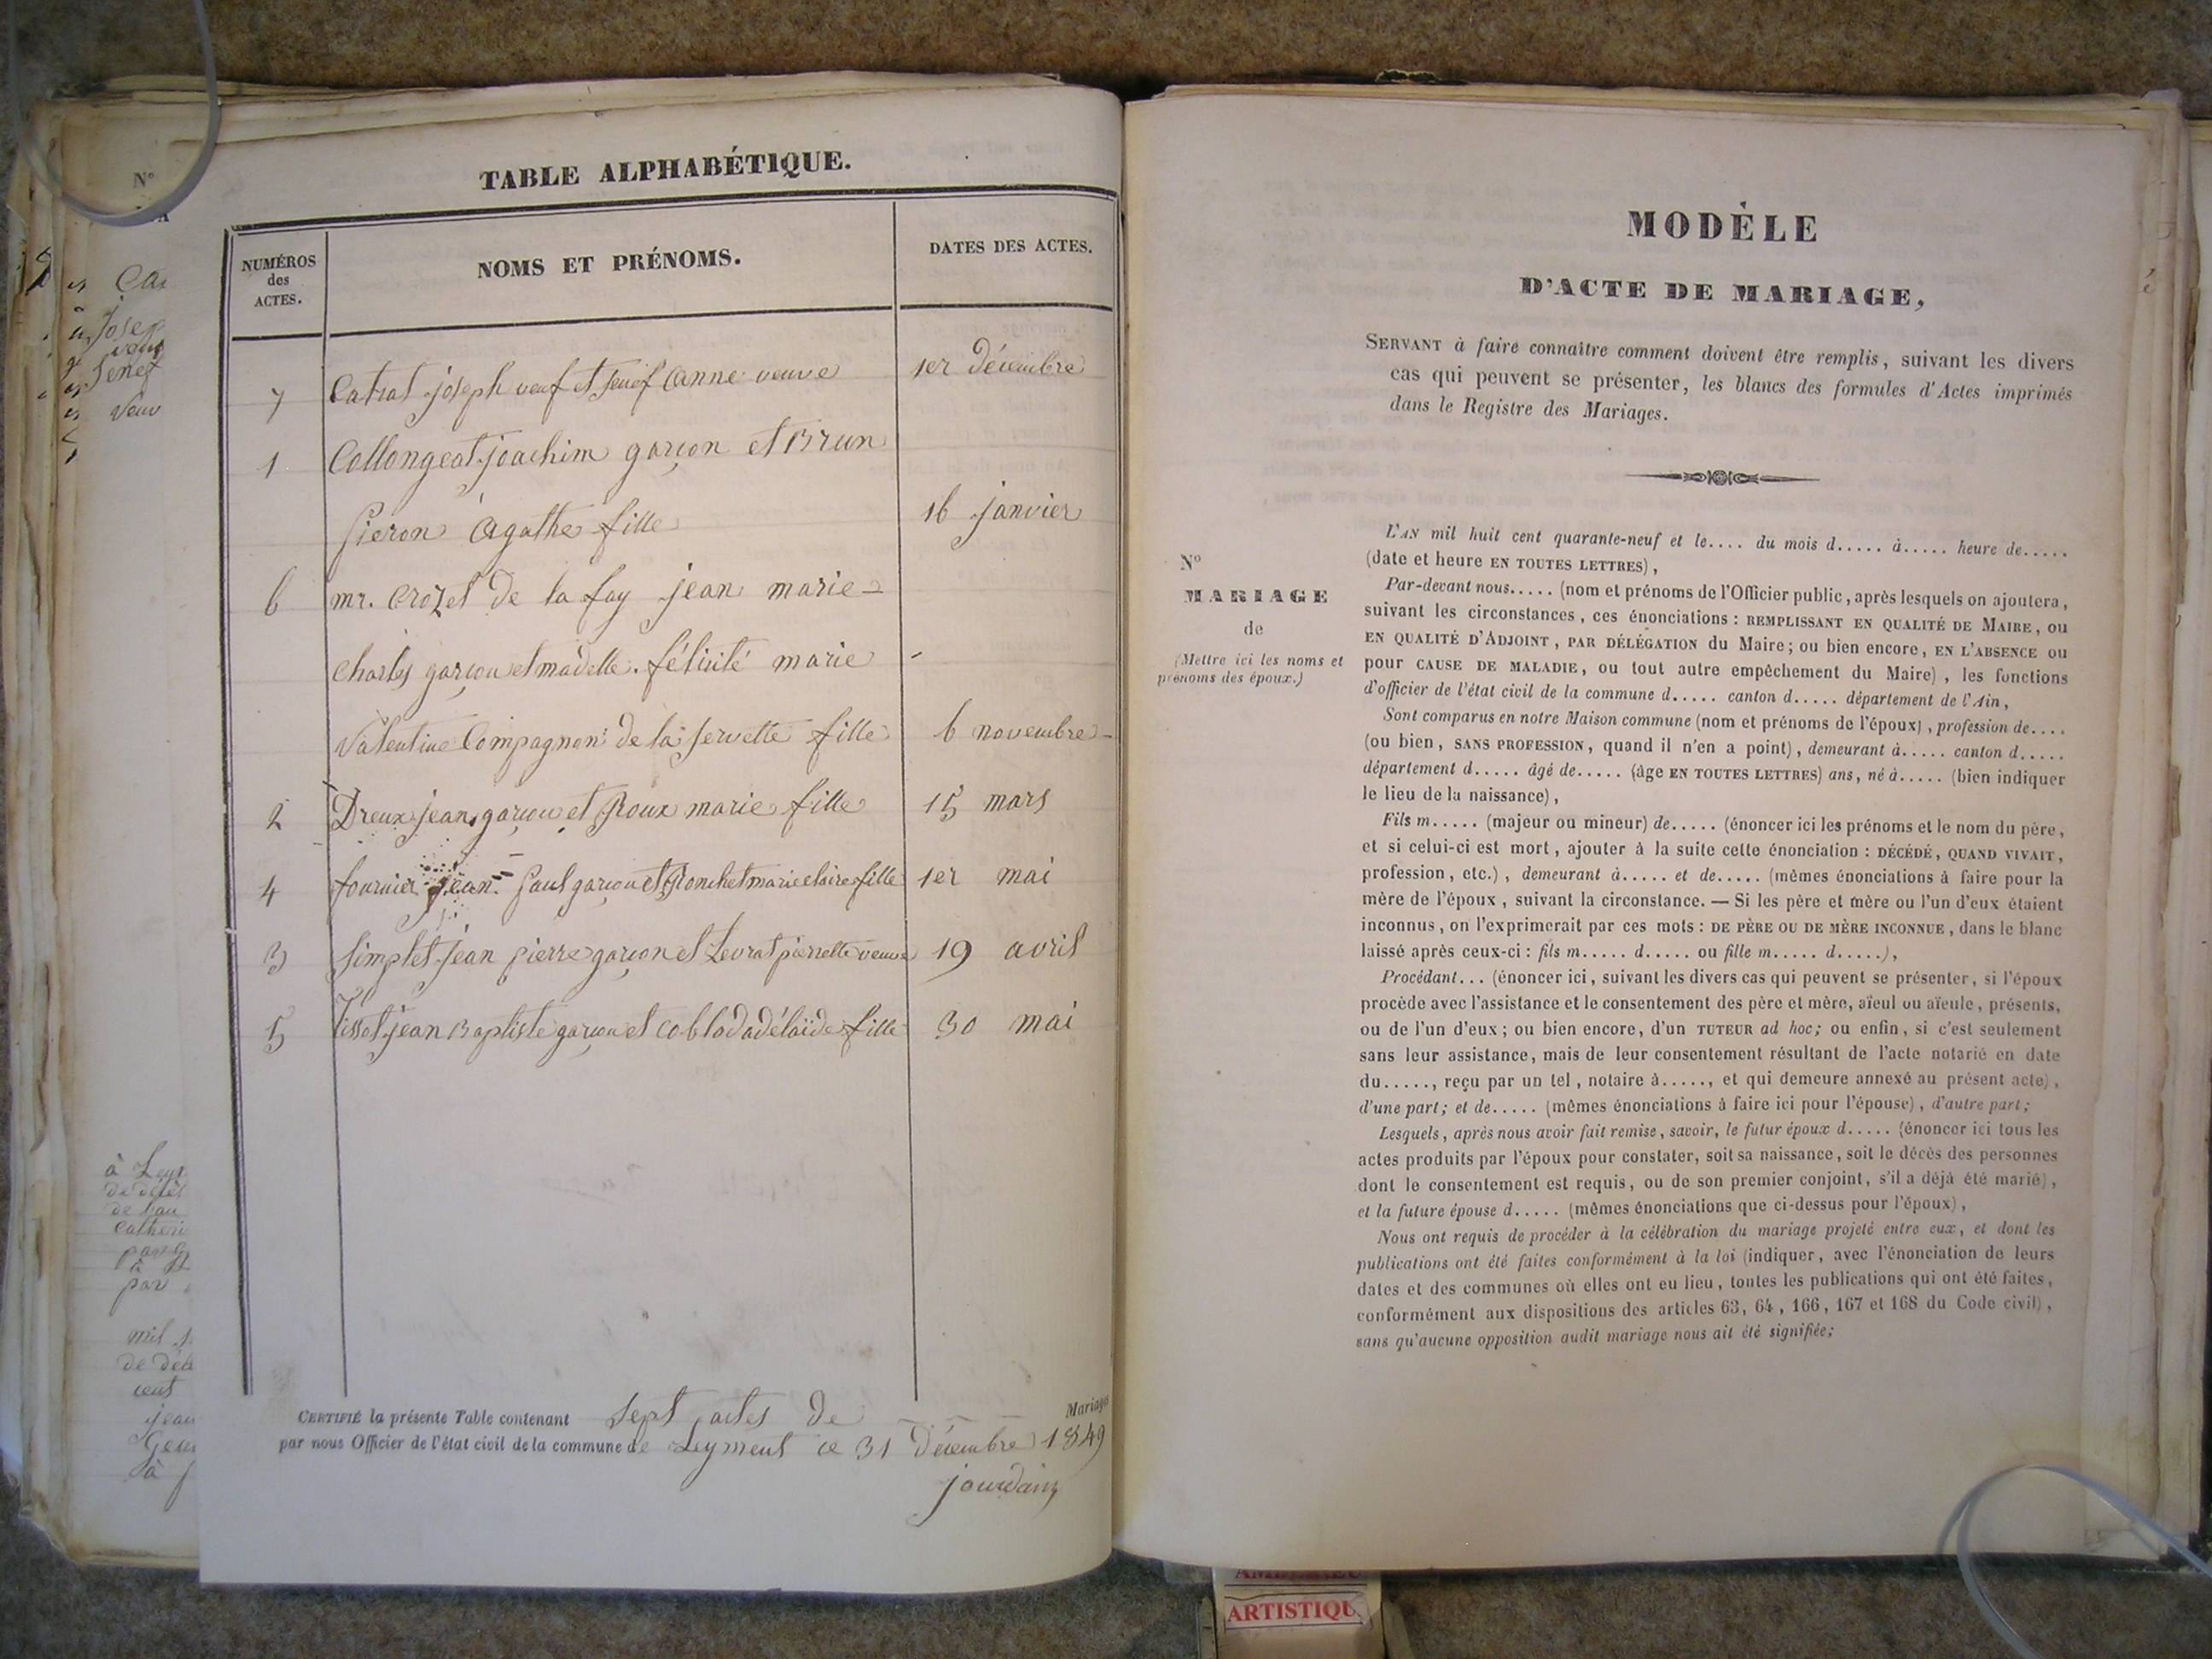 N°
TABLE ALPHABÉTIQUE.
NUMÉROS des ACTES.
NOMS ET PRÉNOMS.
DATES DES ACTES.
7 Catrat joseph veuf et Genef Anne veuve 1er Décembre
1 Collongeat joachim garçon et Brun
Pieron Agathe fille 16 janvier
6 mr. Crozet De la fay jean marie
Charles garçon et madelle. félicité marie
Valentine Compagnon de la Servette fille 6 novembre
2 Dreux jean garçon et Roux marie fille 15 mars
4 fournier jean Paul garçon et Ronchet marie claire fille 1er mai
3 Simplet jean pierre garçon et Levrat pierrette veuve 19 avril
5 Tissot jean Baptiste garçon et Coblod adélaïde fille 30 mai
CERTIFIÉ la présente Table contenant Sept actes de Mariages
par nous Officier de l'état civil de la commune de Leyment ce 31 Décembre 1849
jourdain
MODÈLE
D'ACTE DE MARIAGE,
SERVANT à faire connaître comment doivent être remplis, suivant les divers
cas qui peuvent se présenter, les blancs des formules d'Actes imprimés
dans le Registre des Mariages.
N°
MARIAGE
de
(Mettre ici les noms et
prénoms des époux.)
L'AN mil huit cent quarante-neuf et le.... du mois d..... à..... heure de.....
(date et heure EN TOUTES LETTRES),
Par-devant nous..... (nom et prénoms de l'Officier public, après lesquels on ajoutera,
suivant les circonstances, ces énonciations : REMPLISSANT EN QUALITÉ DE MAIRE, ou
EN QUALITÉ D'ADJOINT, PAR DÉLÉGATION du Maire; ou bien encore, EN L'ABSENCE ou
pour CAUSE DE MALADIE, ou tout autre empêchement du Maire), les fonctions
d'officier de l'état civil de la commune d..... canton d..... département de l'Ain,
Sont comparus en notre Maison commune (nom et prénoms de l'époux), profession de....
(ou bien, SANS PROFESSION, quand il n'en a point), demeurant à..... canton d.....
département d..... âgé de..... (âge EN TOUTES LETTRES) ans, né à..... (bien indiquer
le lieu de la naissance),
Fils m..... (majeur ou mineur) de..... (énoncer ici les prénoms et le nom du père,
et si celui-ci est mort, ajouter à la suite cette énonciation : DÉCÉDÉ, QUAND VIVAIT,
profession, etc.), demeurant à..... et de..... (mêmes énonciations à faire pour la
mère de l'époux, suivant la circonstance. — Si les père et mère ou l'un d'eux étaient
inconnus, on l'exprimerait par ces mots : DE PÈRE OU DE MÈRE INCONNUE, dans le blanc
laissé après ceux-ci : fils m..... d..... ou fille m..... d.....),
Procédant... (énoncer ici, suivant les divers cas qui peuvent se présenter, si l'époux
procède avec l'assistance et le consentement des père et mère, aïeul ou aïeule, présents,
ou de l'un d'eux; ou bien encore, d'un TUTEUR ad hoc; ou enfin, si c'est seulement
sans leur assistance, mais de leur consentement résultant de l'acte notarié en date
du....., reçu par un tel, notaire à....., et qui demeure annexé au présent acte),
d'une part; et de..... (mêmes énonciations à faire ici pour l'épouse), d'autre part;
Lesquels, après nous avoir fait remise, savoir, le futur époux d..... (énoncer ici tous les
actes produits par l'époux pour constater, soit sa naissance, soit le décès des personnes
dont le consentement est requis, ou de son premier conjoint, s'il a déjà été marié),
et la future épouse d..... (mêmes énonciations que ci-dessus pour l'époux),
Nous ont requis de procéder à la célébration du mariage projeté entre eux, et dont les
publications ont été faites conformément à la loi (indiquer, avec l'énonciation de leurs
dates et des communes où elles ont eu lieu, toutes les publications qui ont été faites,
conformément aux dispositions des articles 63, 64, 166, 167 et 168 du Code civil),
sans qu'aucune opposition audit mariage nous ait été signifiée;
ARTISTIQU